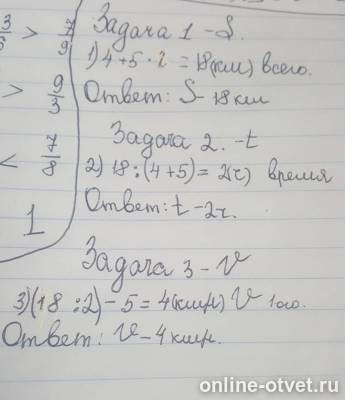 3/5 > 7/9
> 9/3
< 7/8
1
Задача 1 - S.
1) 4+5·2 = 18(км) всего.
Ответ: S - 18 км
Задача 2. - t
2) 18:(4+5)= 2(ч) время
Ответ: t - 2ч.
Задача 3 - V
3)(18:2)-5=4(км/ч) V 1ого.
Ответ: V - 4 км/ч.
online-otvet.ru